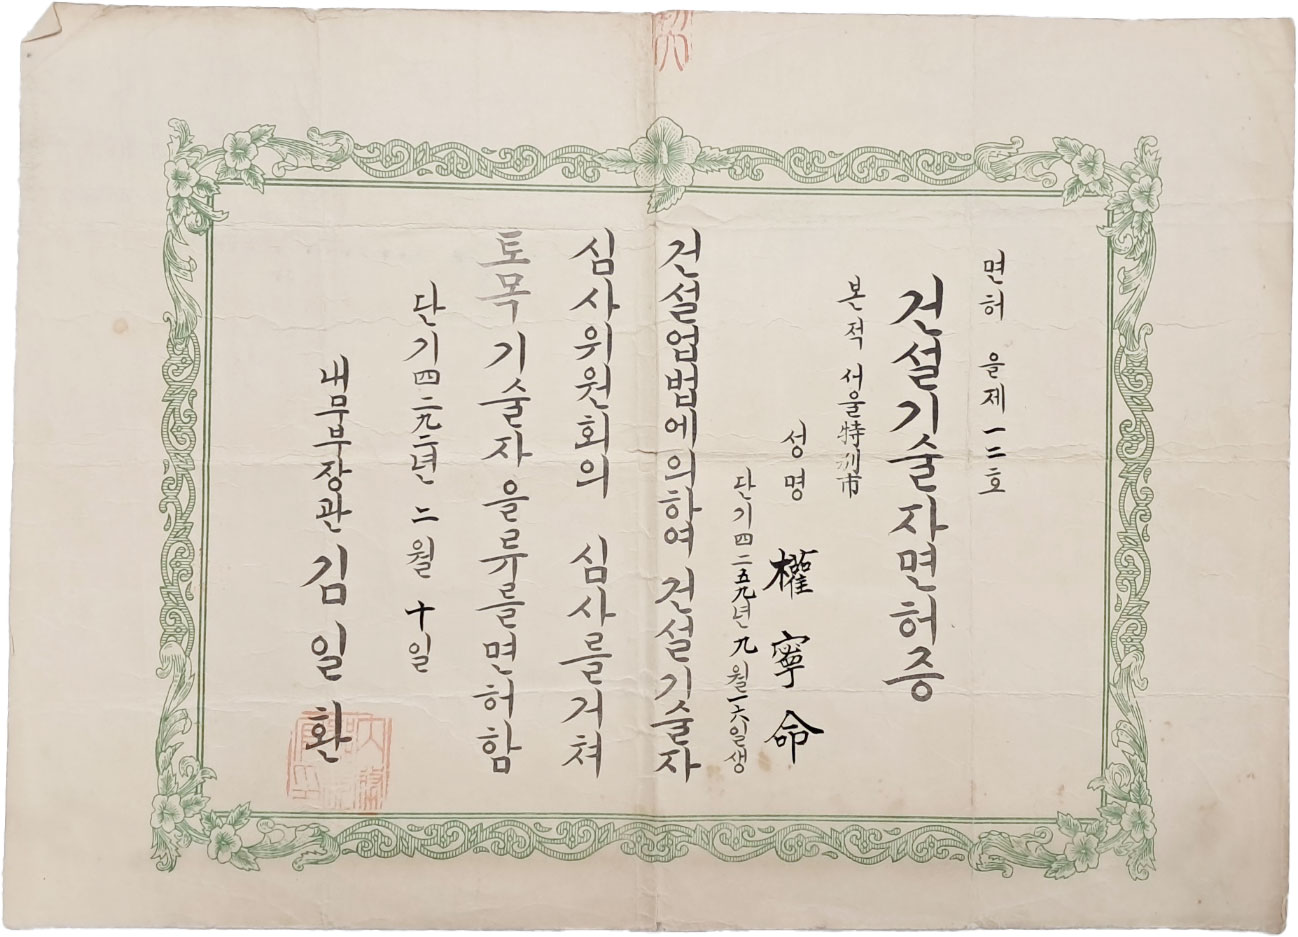 면허 을제一二호
건설기술자면허증
본적 서울特別市
성명 權寧命
단기四二五九년九월一六일생
건설업법에의하여 건설기술자
심사위원회의 심사를거쳐
토목기술자을류를면허함
단기四二九二년 二월 十일
내무부장관 김일환